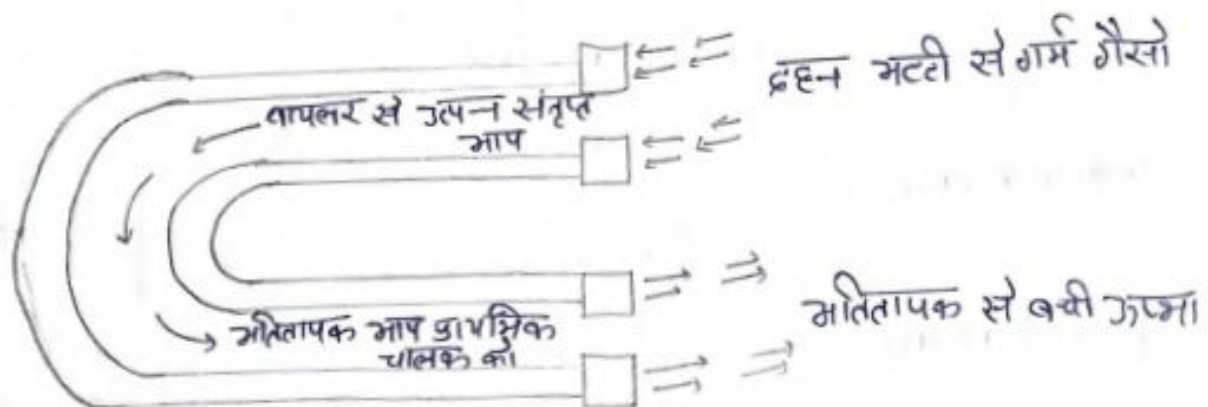 दहन भटटी से गर्म गैसो
वायलर से उत्पन संतृप्त
भाप
अतितापक भाप प्राथमिक
चालक को
अतितापक से बची उष्मा